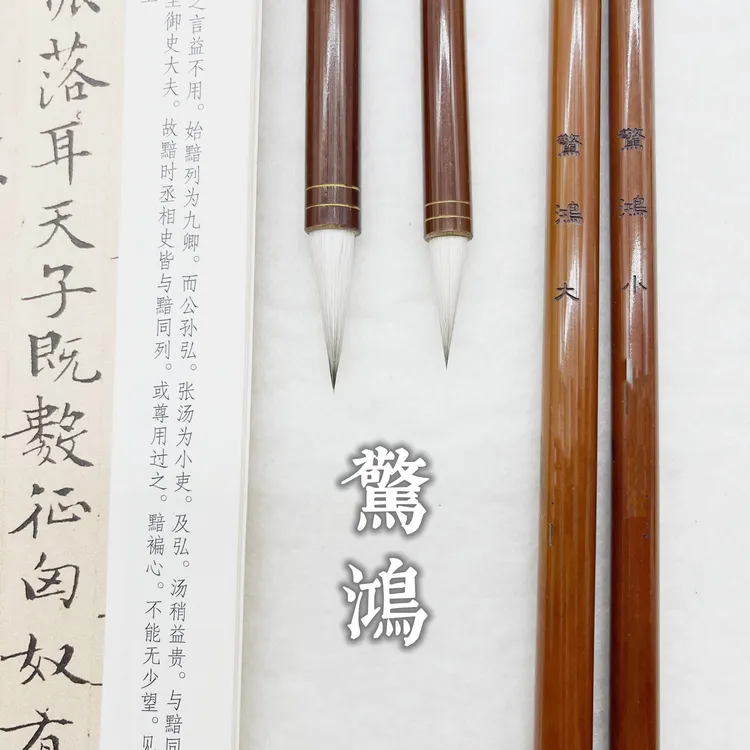 驚鴻小
驚鴻大
驚鴻
之言益不用。始黯列为九卿。而公孙弘。张汤为小吏。及弘。汤稍益贵。与黯同
御史大夫。故黯时丞相史皆与黯同列。或尊用过之。黯褊心。不能无少望。见
落耳天子既數征匈奴有